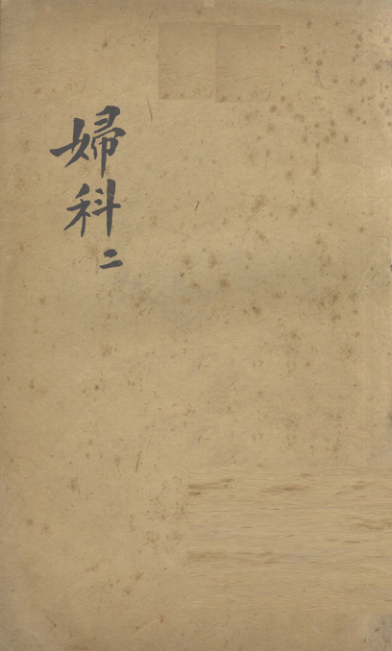 婦科二